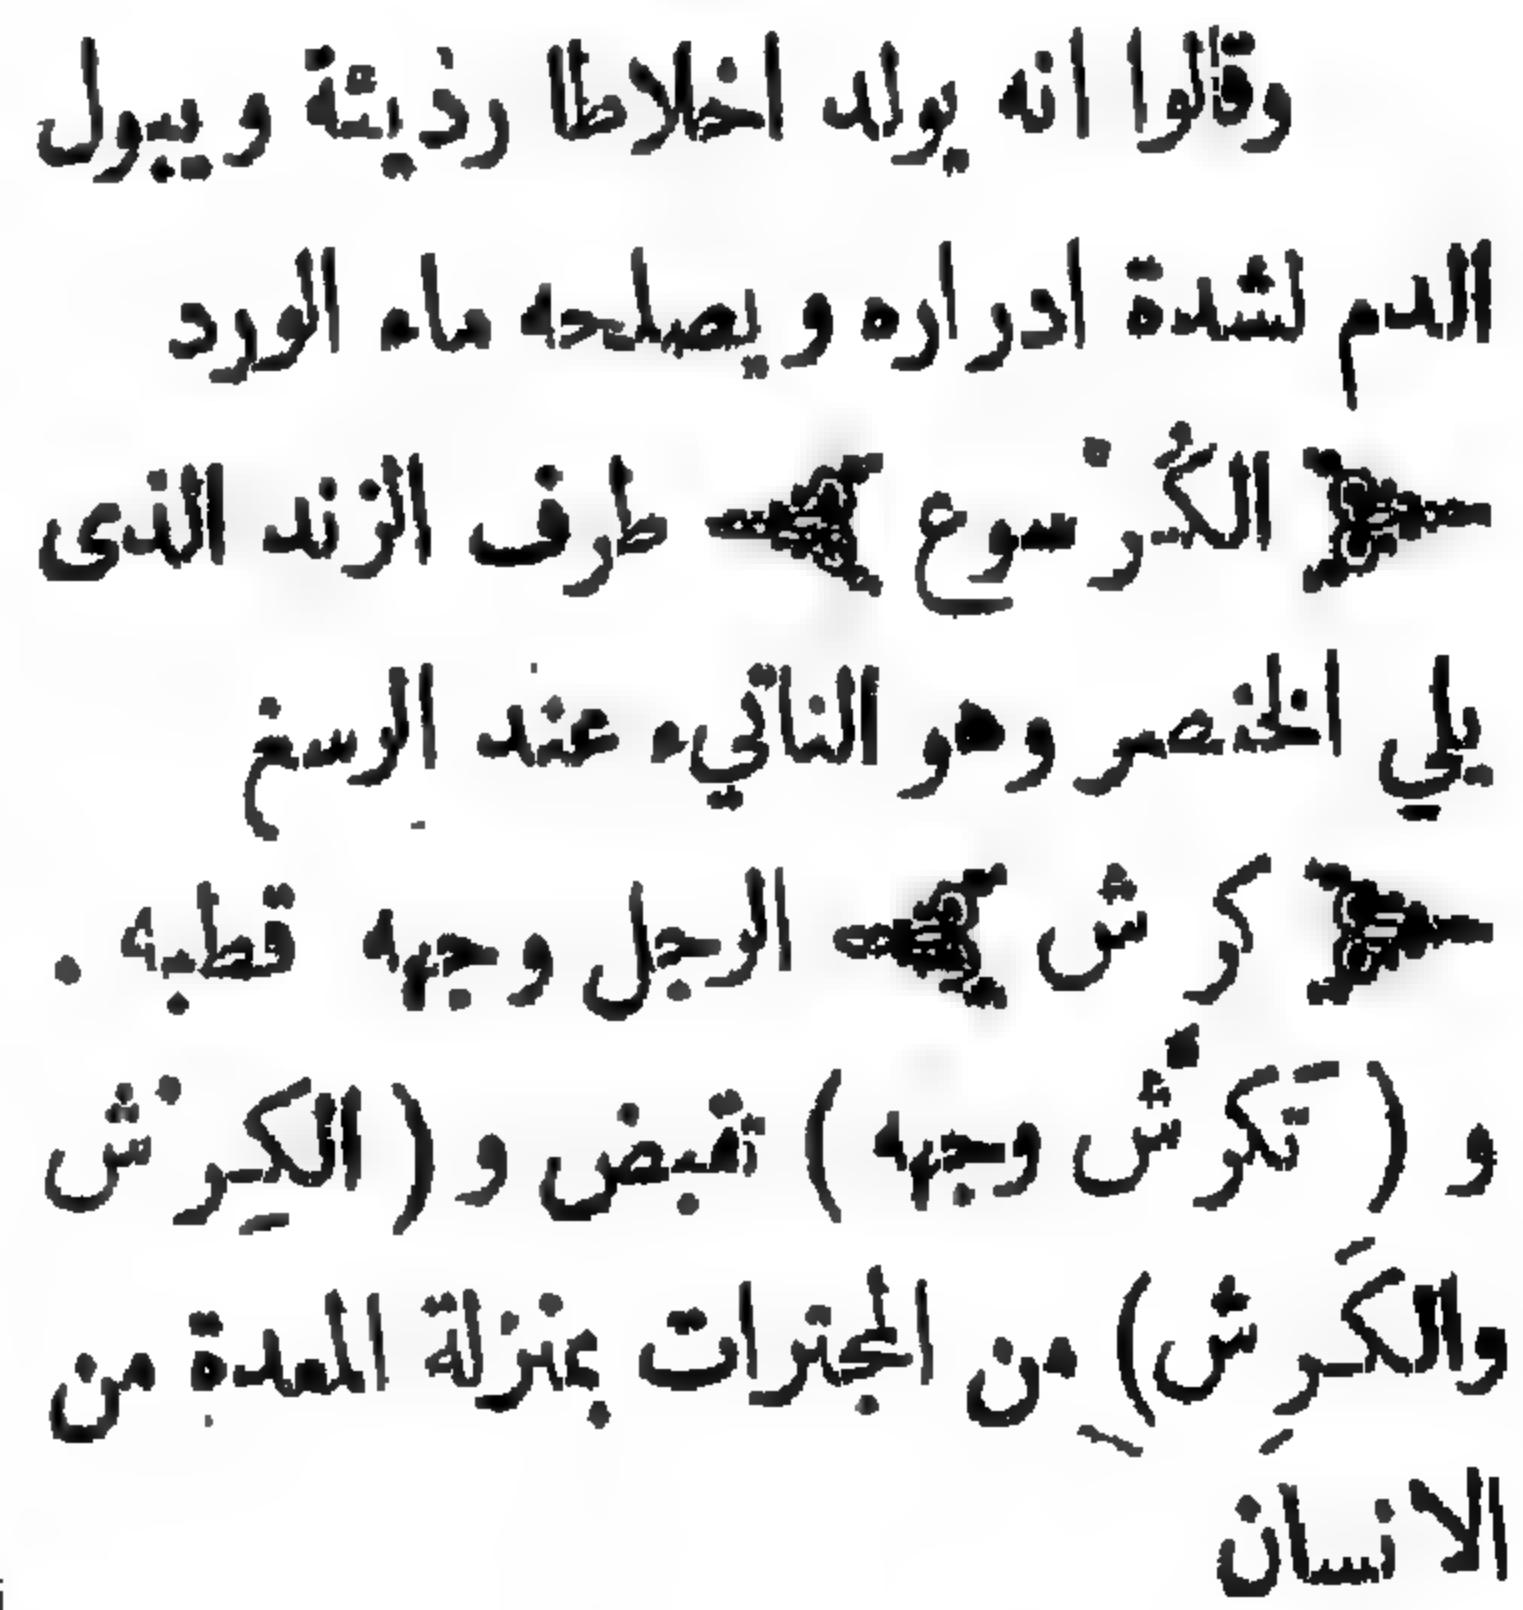 وقالوا انه يولد اخلاطا رذيئة و يبول
الدم لشدة ادراره و يصلحه ماء الورد
﴿ الكُرْسوع ﴾ طرف الزند الذى
يلي الخنصر وهو الناتيء عند الرسغ
﴿ كرش ﴾ الرجل وجهه قطبه .
و ( تَكرش وجهه ) تقبض و ( الكِرْش
والكَرِش) من المجترات بمنزلة المعدة من
الانسان